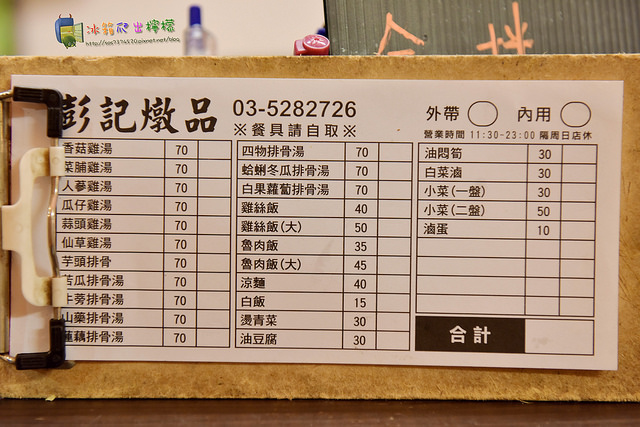 冰箱爬出檸檬
http://ss7314520.pixnet.net/blog
合拌
彭記燉品
03-5282726
※餐具請自取※
外帶 內用
營業時間 11:30-23:00 隔周日店休
香菇雞湯 70
菜脯雞湯 70
人蔘雞湯 70
瓜仔雞湯 70
蒜頭雞湯 70
仙草雞湯 70
芋頭排骨 70
苦瓜排骨湯 70
牛蒡排骨湯 70
山藥排骨湯 70
蓮藕排骨湯 70
四物排骨湯 70
蛤蜊冬瓜排骨湯 70
白果蘿蔔排骨湯 70
雞絲飯 40
雞絲飯(大) 50
魯肉飯 35
魯肉飯(大) 45
涼麵 40
白飯 15
燙青菜 30
油豆腐 30
油悶筍 30
白菜滷 30
小菜(一盤) 30
小菜(二盤) 50
滷蛋 10
合計